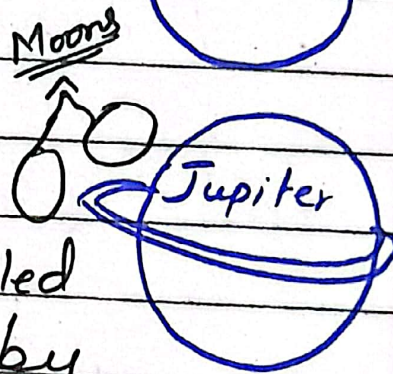 Moons
Jupiter
led
by